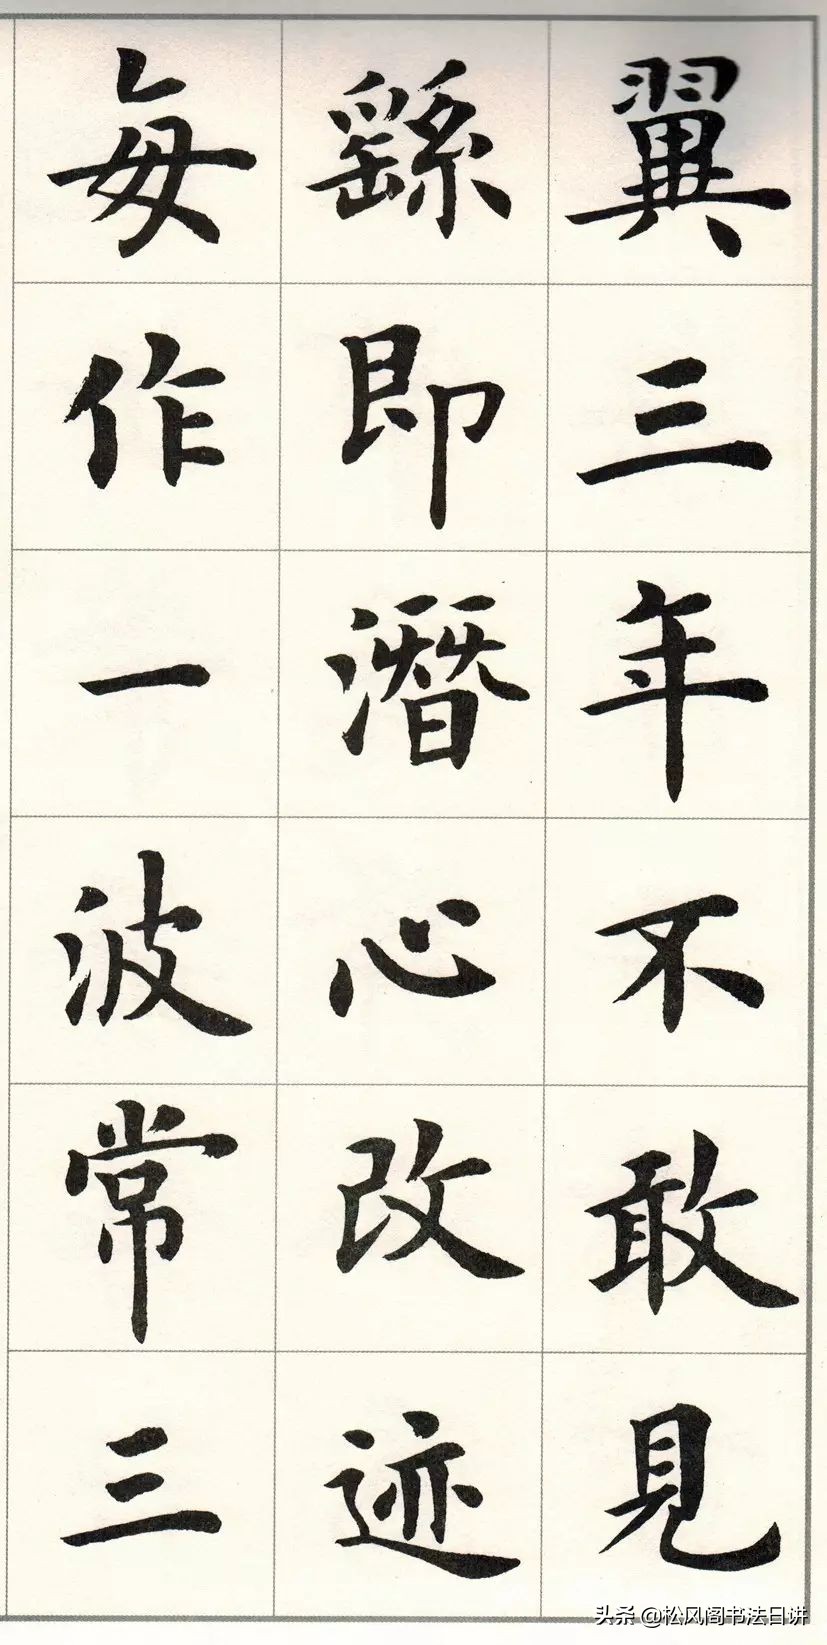 翼三年不敢見
繇即潛心改迹
每作一波常三
头条 @松风阁书法日讲